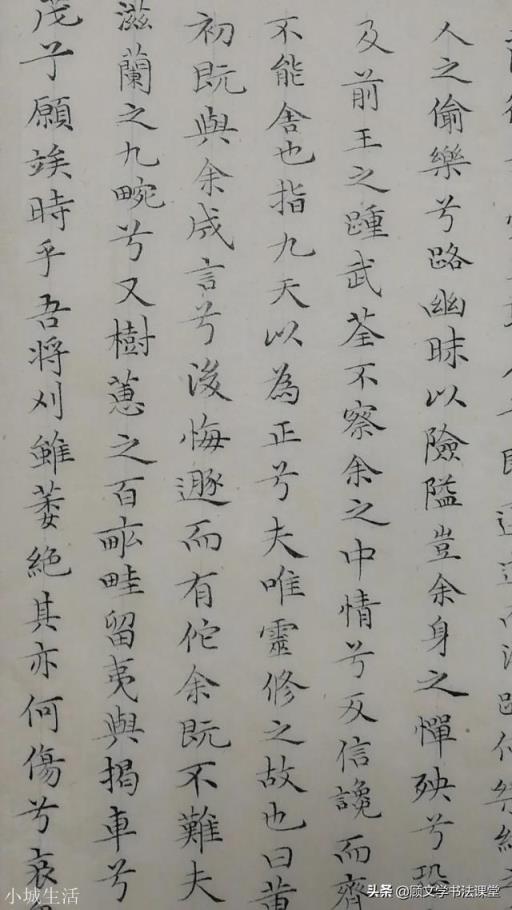 人之偷樂兮路幽昧以險隘豈余身之憚殃兮恐
及前王之踵武荃不察余之中情兮反信讒而齊
不能舍也指九天以為正兮夫唯靈修之故也曰黄
初既與余成言兮後悔遯而有佗余既不難夫
滋蘭之九畹兮又樹蕙之百畝畦留夷與揭車兮
茂兮願竢時乎吾將刈雖萎絕其亦何傷兮哀
小城生活
头条 @顾文学书法课堂